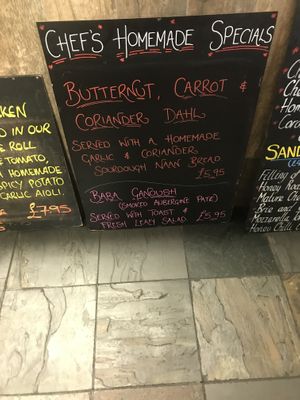 CHEF'S HOMEMADE SPECIALS
BUTTERNUT, CARROT &
CORIANDER DAHL
SERVED WITH A HOMEMADE
GARLIC & CORIANDER
SOURDOUGH NAAN BREAD
£5.95
BABA GANOUSH
(SMOKED AUBERGINE PATE)
SERVED WITH TOAST & £5.95
FRESH LEAFY SALAD
KEN
D IN OUR
E ROLL
TOMATO,
HOMEMADE
SPICY POTATO
GARLIC AIOLI.
£7.95
SAND
Filling of
Honey Roa
Mature Ch
Brie and
Mozzarella
Honey Chilli C